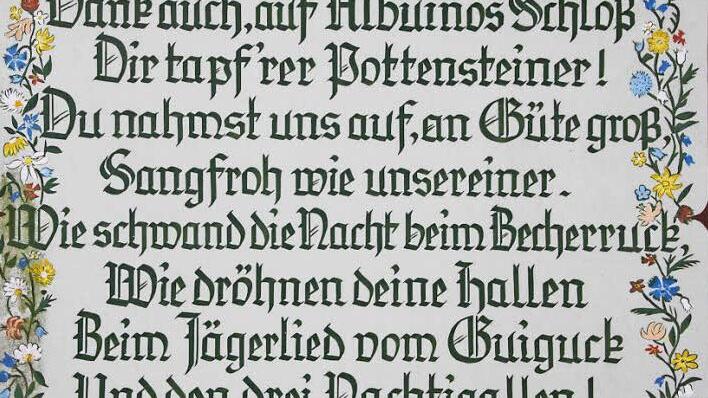 Dank auch, auf Albuinos Schloß
Dir tapf'rer Pottensteiner!
Du nahmst uns auf, an Güte groß,
Sangfroh wie unsereiner.
Wie schwand die Nacht beim Becherruck,
Wie dröhnen deine Hallen
Beim Jägerlied vom Guiguck
Und den drei Nachtigallen!